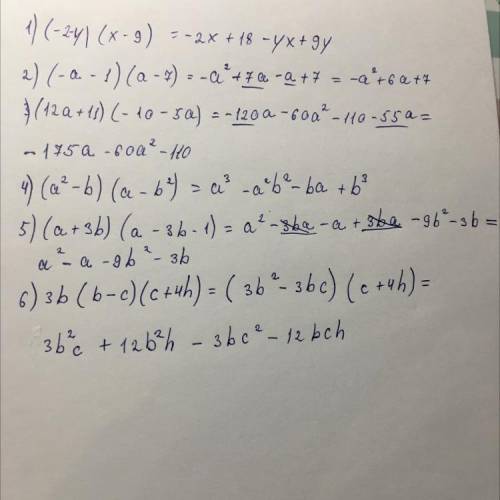 1) (-2-y) (x-9) = -2x + 18 - yx + 9y
2) (-a - 1) (a - 7) = -a² + 7a - a + 7 = -a² + 6a + 7
3) (12a + 11) (-10 - 5a) = -120a - 60a² - 110 - 55a =
- 175a - 60a² - 110
4) (a² - b) (a - b²) = a³ - a²b² - ba + b³
5) (a + 3b) (a - 3b - 1) = a² - 3ba - a + 3ba - 9b² - 3b =
a² - a - 9b² - 3b
6) 3b (b - c) (c + 4h) = (3b² - 3bc) (c + 4h) =
3b²c + 12b²h - 3bc² - 12bch